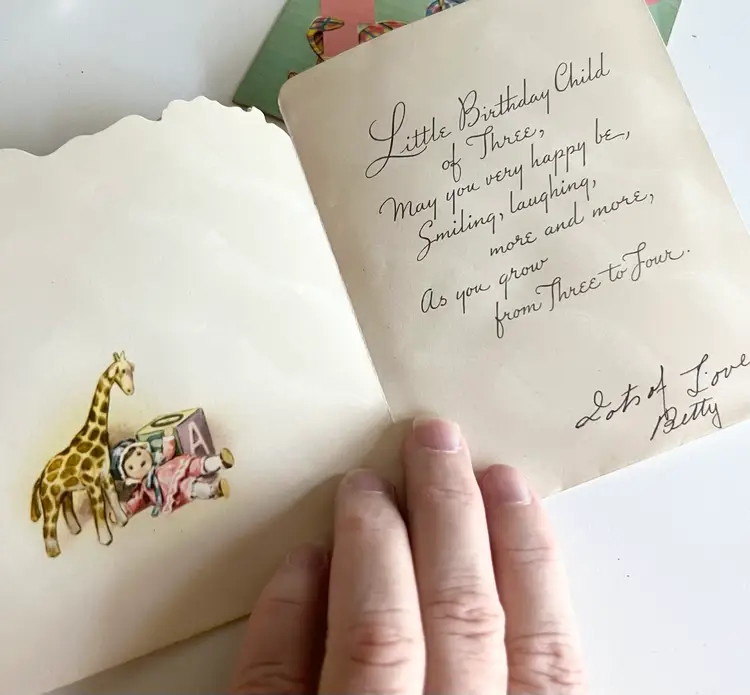 Little Birthday Child
of Three,
May you very happy be,
Smiling, laughing,
more and more,
As you grow
from Three to Four.
Lots of Love
Betty
A